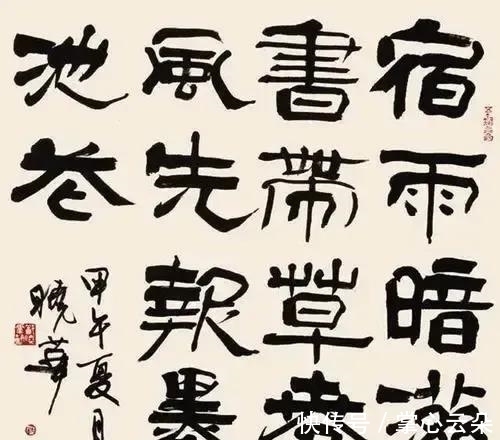 宿雨暗滋
書帶草
風先報墨
池花
甲午夏月
曉華
快传号 / 掌心云朵